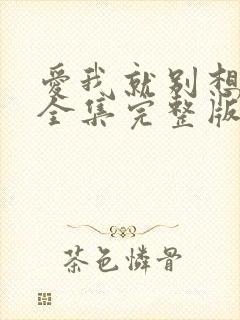 愛我就别想
全集完整版
茶色憐骨